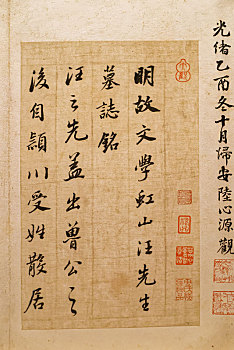 光緒乙酉冬十月歸安陸心源觀
明故文學虹山汪先生
墓誌銘
汪之先蓋出魯公之
後自潁川受姓散居